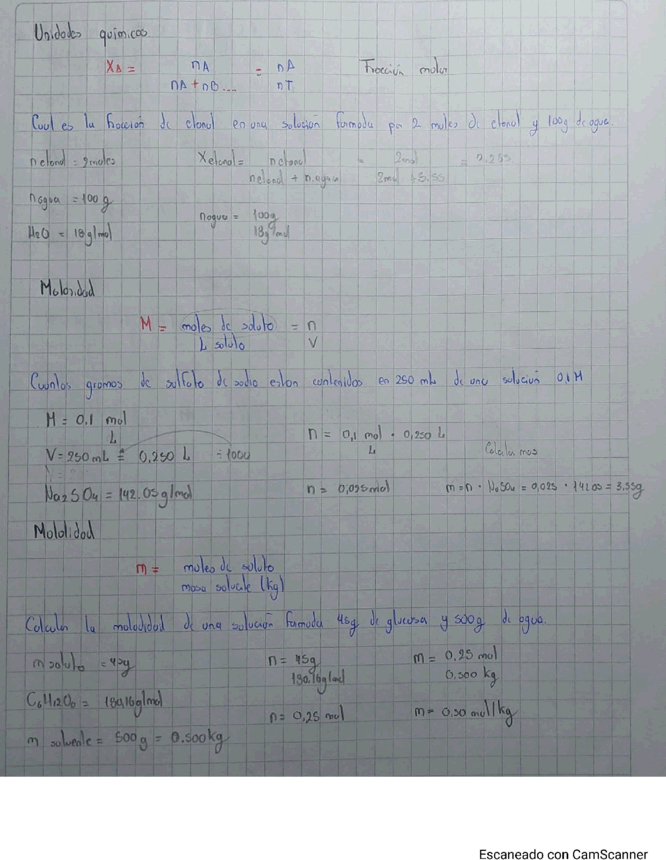 Unidades quimicas
XA = nA / nA + nB... = nA / nT Fracción molar
Cual es la fracción de etanol en una solución formada por 2 moles de etanol y 100g de agua.
n etanol = 2moles
X etanol = n etanol / n etanol + n agua = 2mol / 2mol + 5.55 = 0.265
n agua = 100 g
H2O = 18 g/mol
n agua = 100g / 18g/mol
Molaridad
M = moles de soluto / L soluto = n / V
Cuantos gramos de sulfato de sodio estan contenidos en 250 mL de una solución 0,1 M
M = 0.1 mol / L
n = 0,1 mol / L · 0,250 L
V = 250 mL = 0,250 L ÷ 1000
Calculamos
Na2SO4 = 142.05 g/mol
n = 0,025 mol
m = n · NaSO4 = 0,025 · 142.05 = 3.55g
Molalidad
m = moles de soluto / masa solvente (kg)
Calcular la molalidad de una solución formada 45g de glucosa y 500g de agua
m soluto = 45g
n = 45g / 180,16g/mol
m = 0,25 mol / 0.500 kg
C6H12O6 = 180,16g/mol
n = 0,25 mol
m = 0,50 mol/kg
m solvente = 500 g = 0.500kg
Escaneado con CamScanner